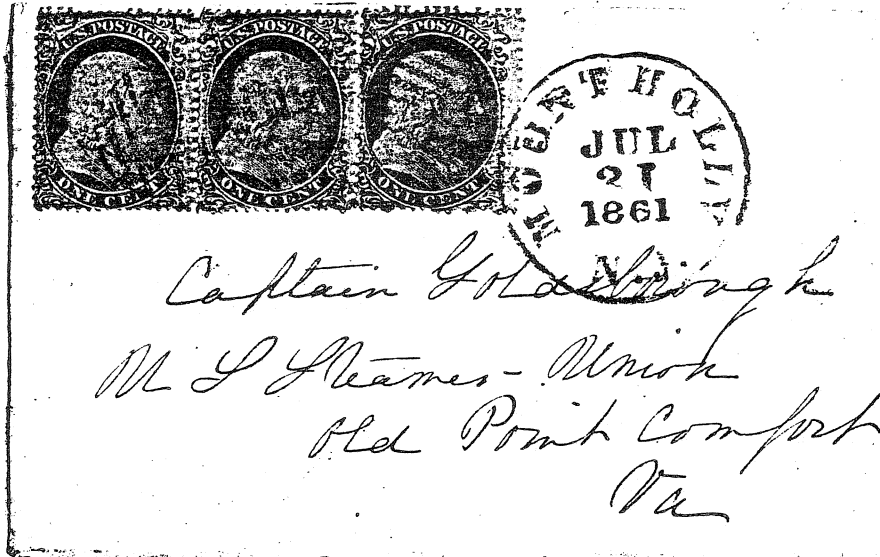 U.S. POSTAGE U.S. POSTAGE U.S. POSTAGE
ONE CENT ONE CENT ONE CENT
MOUNT HOLLY
JUL
21
1861
N.J
Captain Goldsborough
U S Steamer - Union
Old Point Comfort
Va